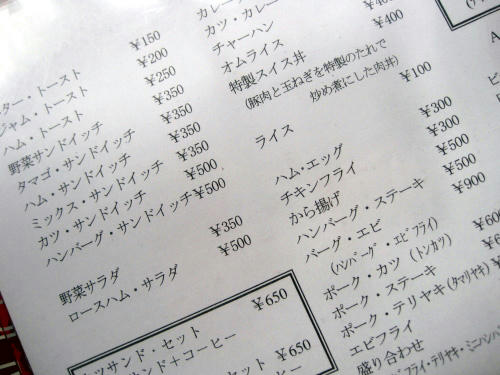 ¥150
¥200
¥250
¥350
¥350
¥350
¥500
¥500
ター・トースト
ジャム・トースト
ハム・トースト
野菜サンドイッチ
タマゴ・サンドイッチ
ハム・サンドイッチ
ミックス・サンドイッチ
カツ・サンドイッチ
ハンバーグ・サンドイッチ
野菜サラダ ¥350
ロースハム・サラダ ¥500
ツサンド・セット ¥650
ンド+コーヒー
セット ¥650
ーヒー
カレー
カツ・カレー
チャーハン
オムライス ¥400
特製スイス丼
(豚肉と玉ねぎを特製のたれで
炒め煮にした肉丼)
ライス ¥100
ハム・エッグ ¥300
チキンフライ ¥300
から揚げ ¥500
ハンバーグ・ステーキ ¥500
バーグ・エビ ¥900
(ハンバーグ・エビフライ)
ポーク・カツ (トンカツ) ¥600
ポーク・ステーキ
ポーク・テリヤキ(タマリヤキ)
エビフライ
盛り合わせ
フライ・テリヤキ・ミニハンバ